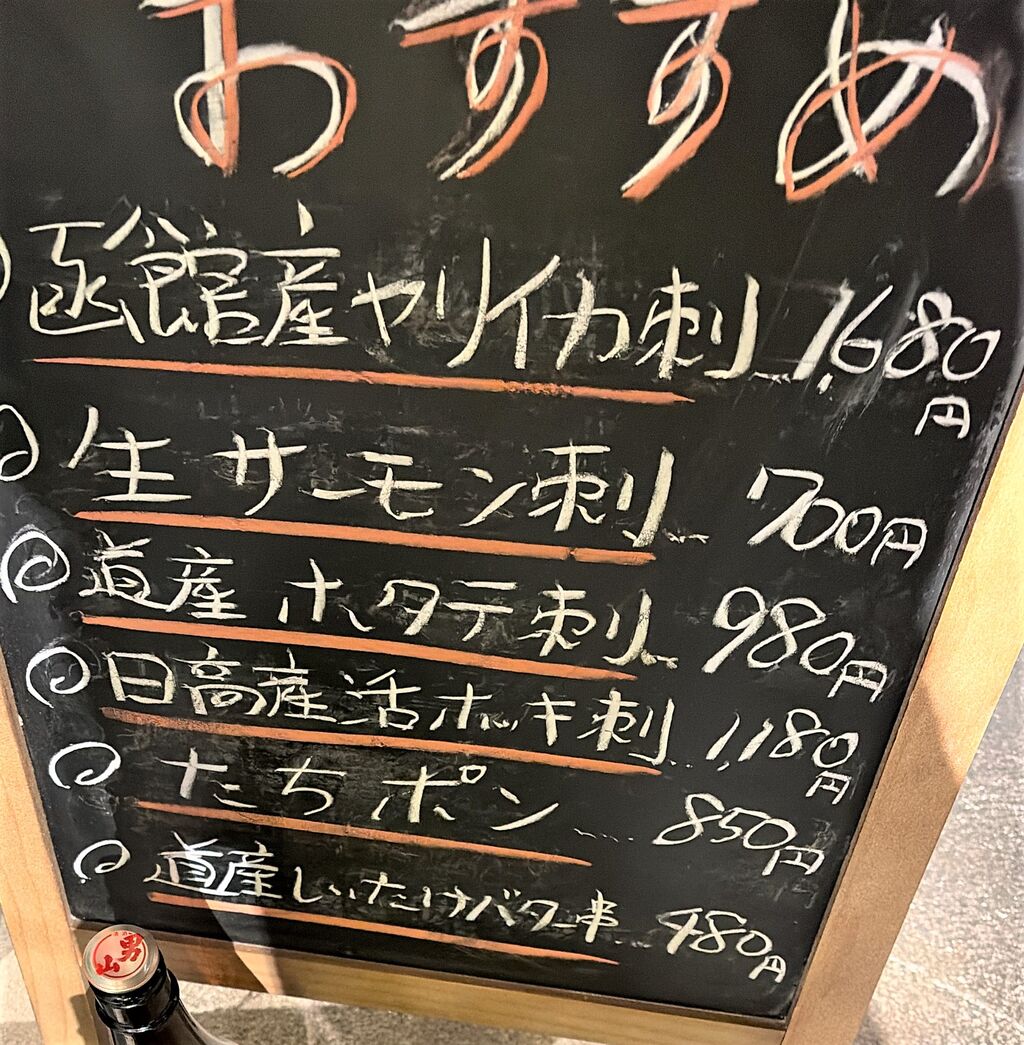 おすすめ
函館産ヤリイカ刺 1,680円
生サーモン刺 700円
道産ホタテ刺 980円
日高産活ホッキ刺 1,180円
たちポン 850円
道産しいたけバター串 480円
男山